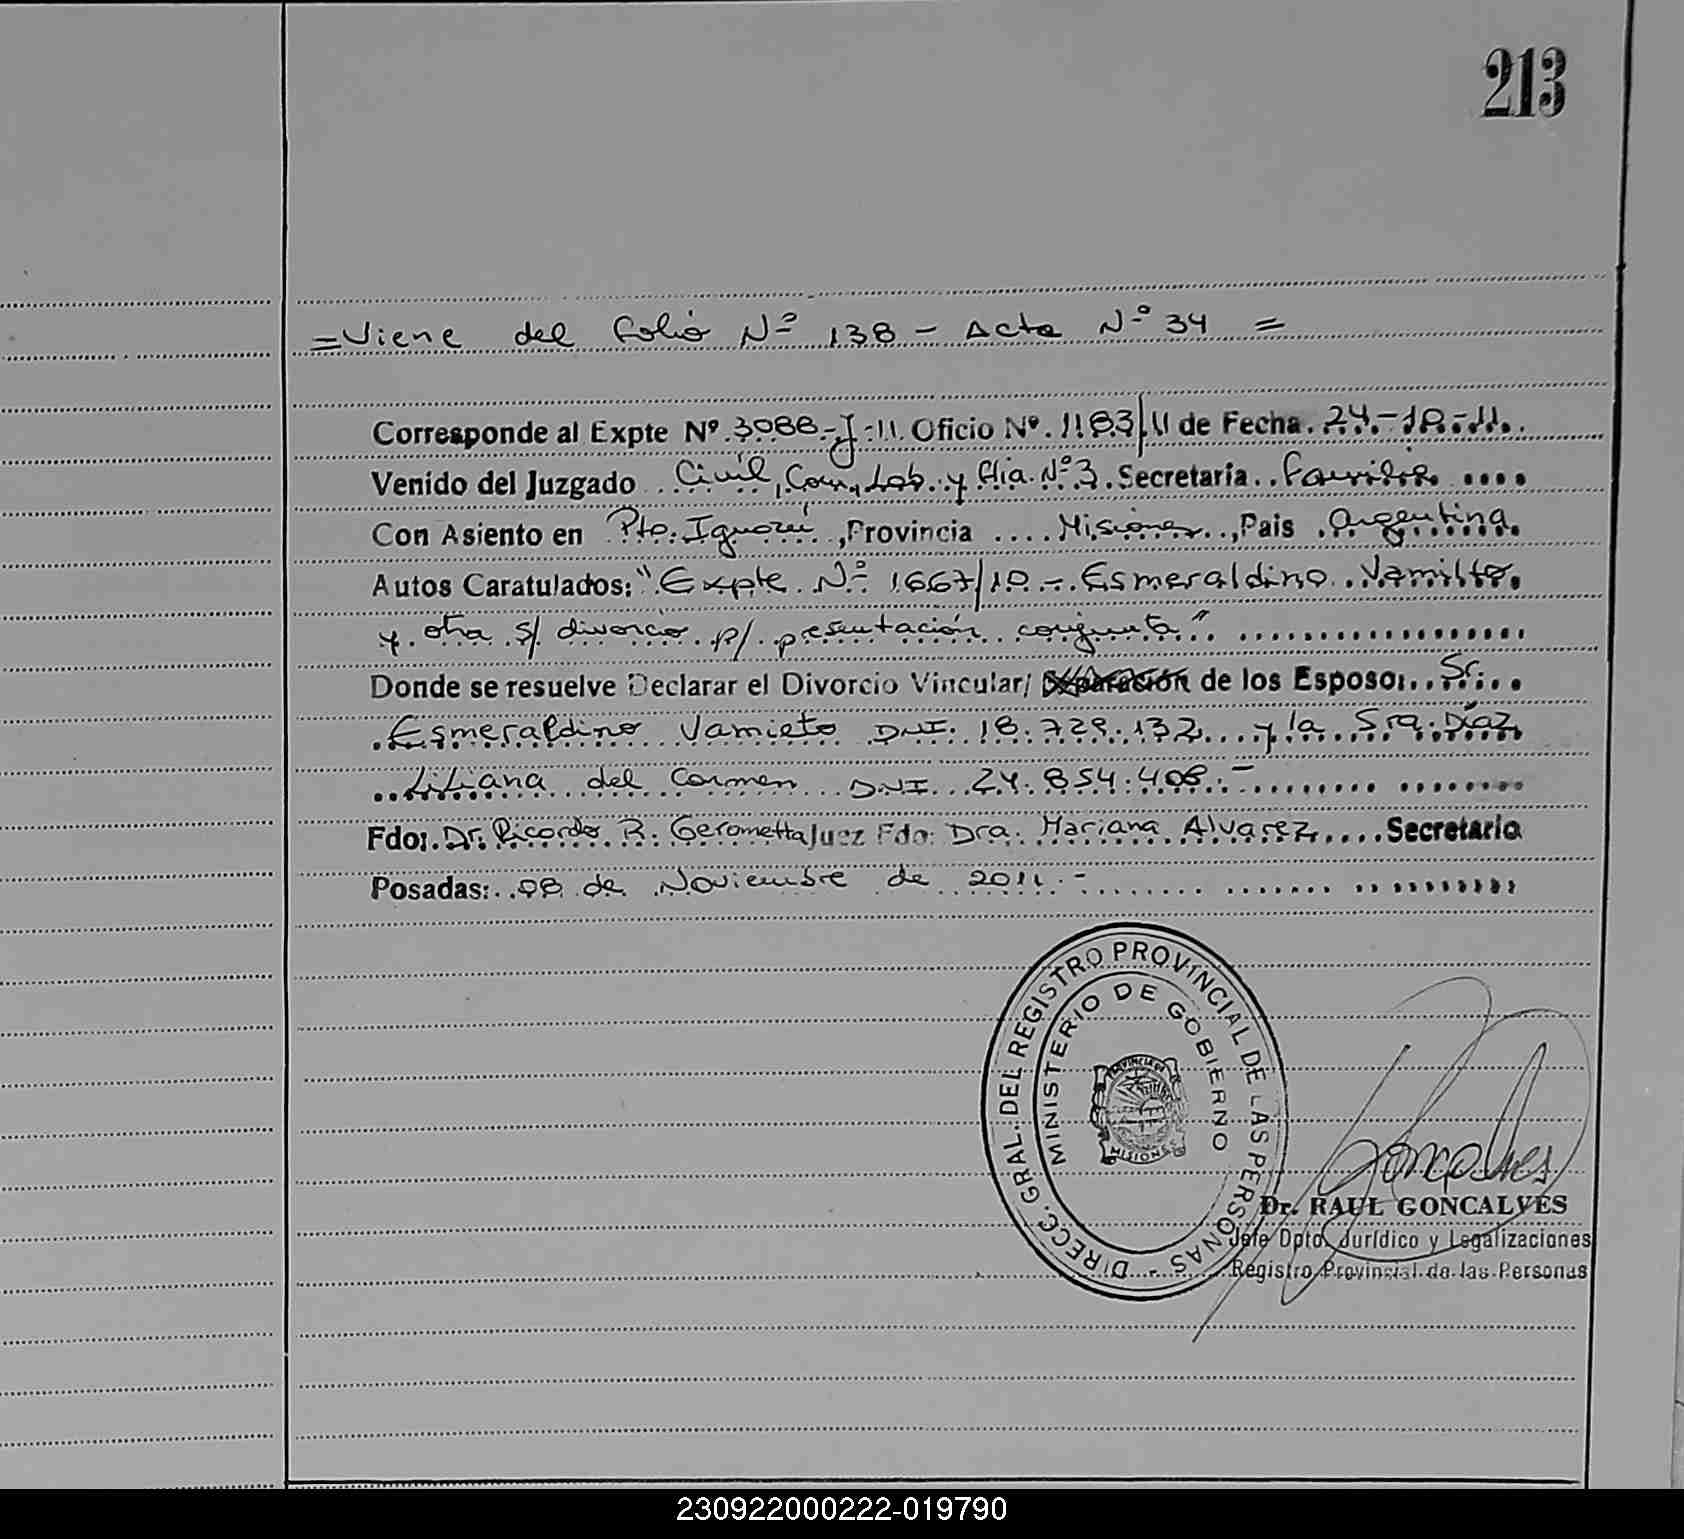 213
= Viene del Folio Nº 138 - Acta Nº 34 =
Corresponde al Expte Nº 3088-J-11 Oficio Nº 1183/11 de Fecha 24-10-11.
Venido del Juzgado Civil, Com, Lab. y Flia. Nº 3. Secretaría Familia
Con Asiento en Pto. Iguazú, Provincia Misiones, Pais Argentina.
Autos Caratulados: "Expte Nº 1667/10 - Esmeraldino Vamilto.
y otra s/ divorcio p/ presentación conjunta"
Donde se resuelve Declarar el Divorcio Vincular/ Separación de los Esposos Sr.
Esmeraldino Vamieto DNI. 18.729.132 y la Sra. Díaz,
Liliana del Carmen DNI 24.854.408.-
Fdo: Dr. Ricardo R. Gerometta Juez Fdo: Dra. Mariana Alvarez, Secretario
Posadas: 08 de Noviembre de 2011.-
DIRECC. GRAL. DEL REGISTRO PROVINCIAL DE LAS PERSONAS -
MINISTERIO DE GOBIERNO
PROVINCIA DE
MISIONES
Goncalves
Dr. RAUL GONCALVES
Jefe Dpto. Jurídico y Legalizaciones
Registro Provincial de las Personas
230922000222-019790